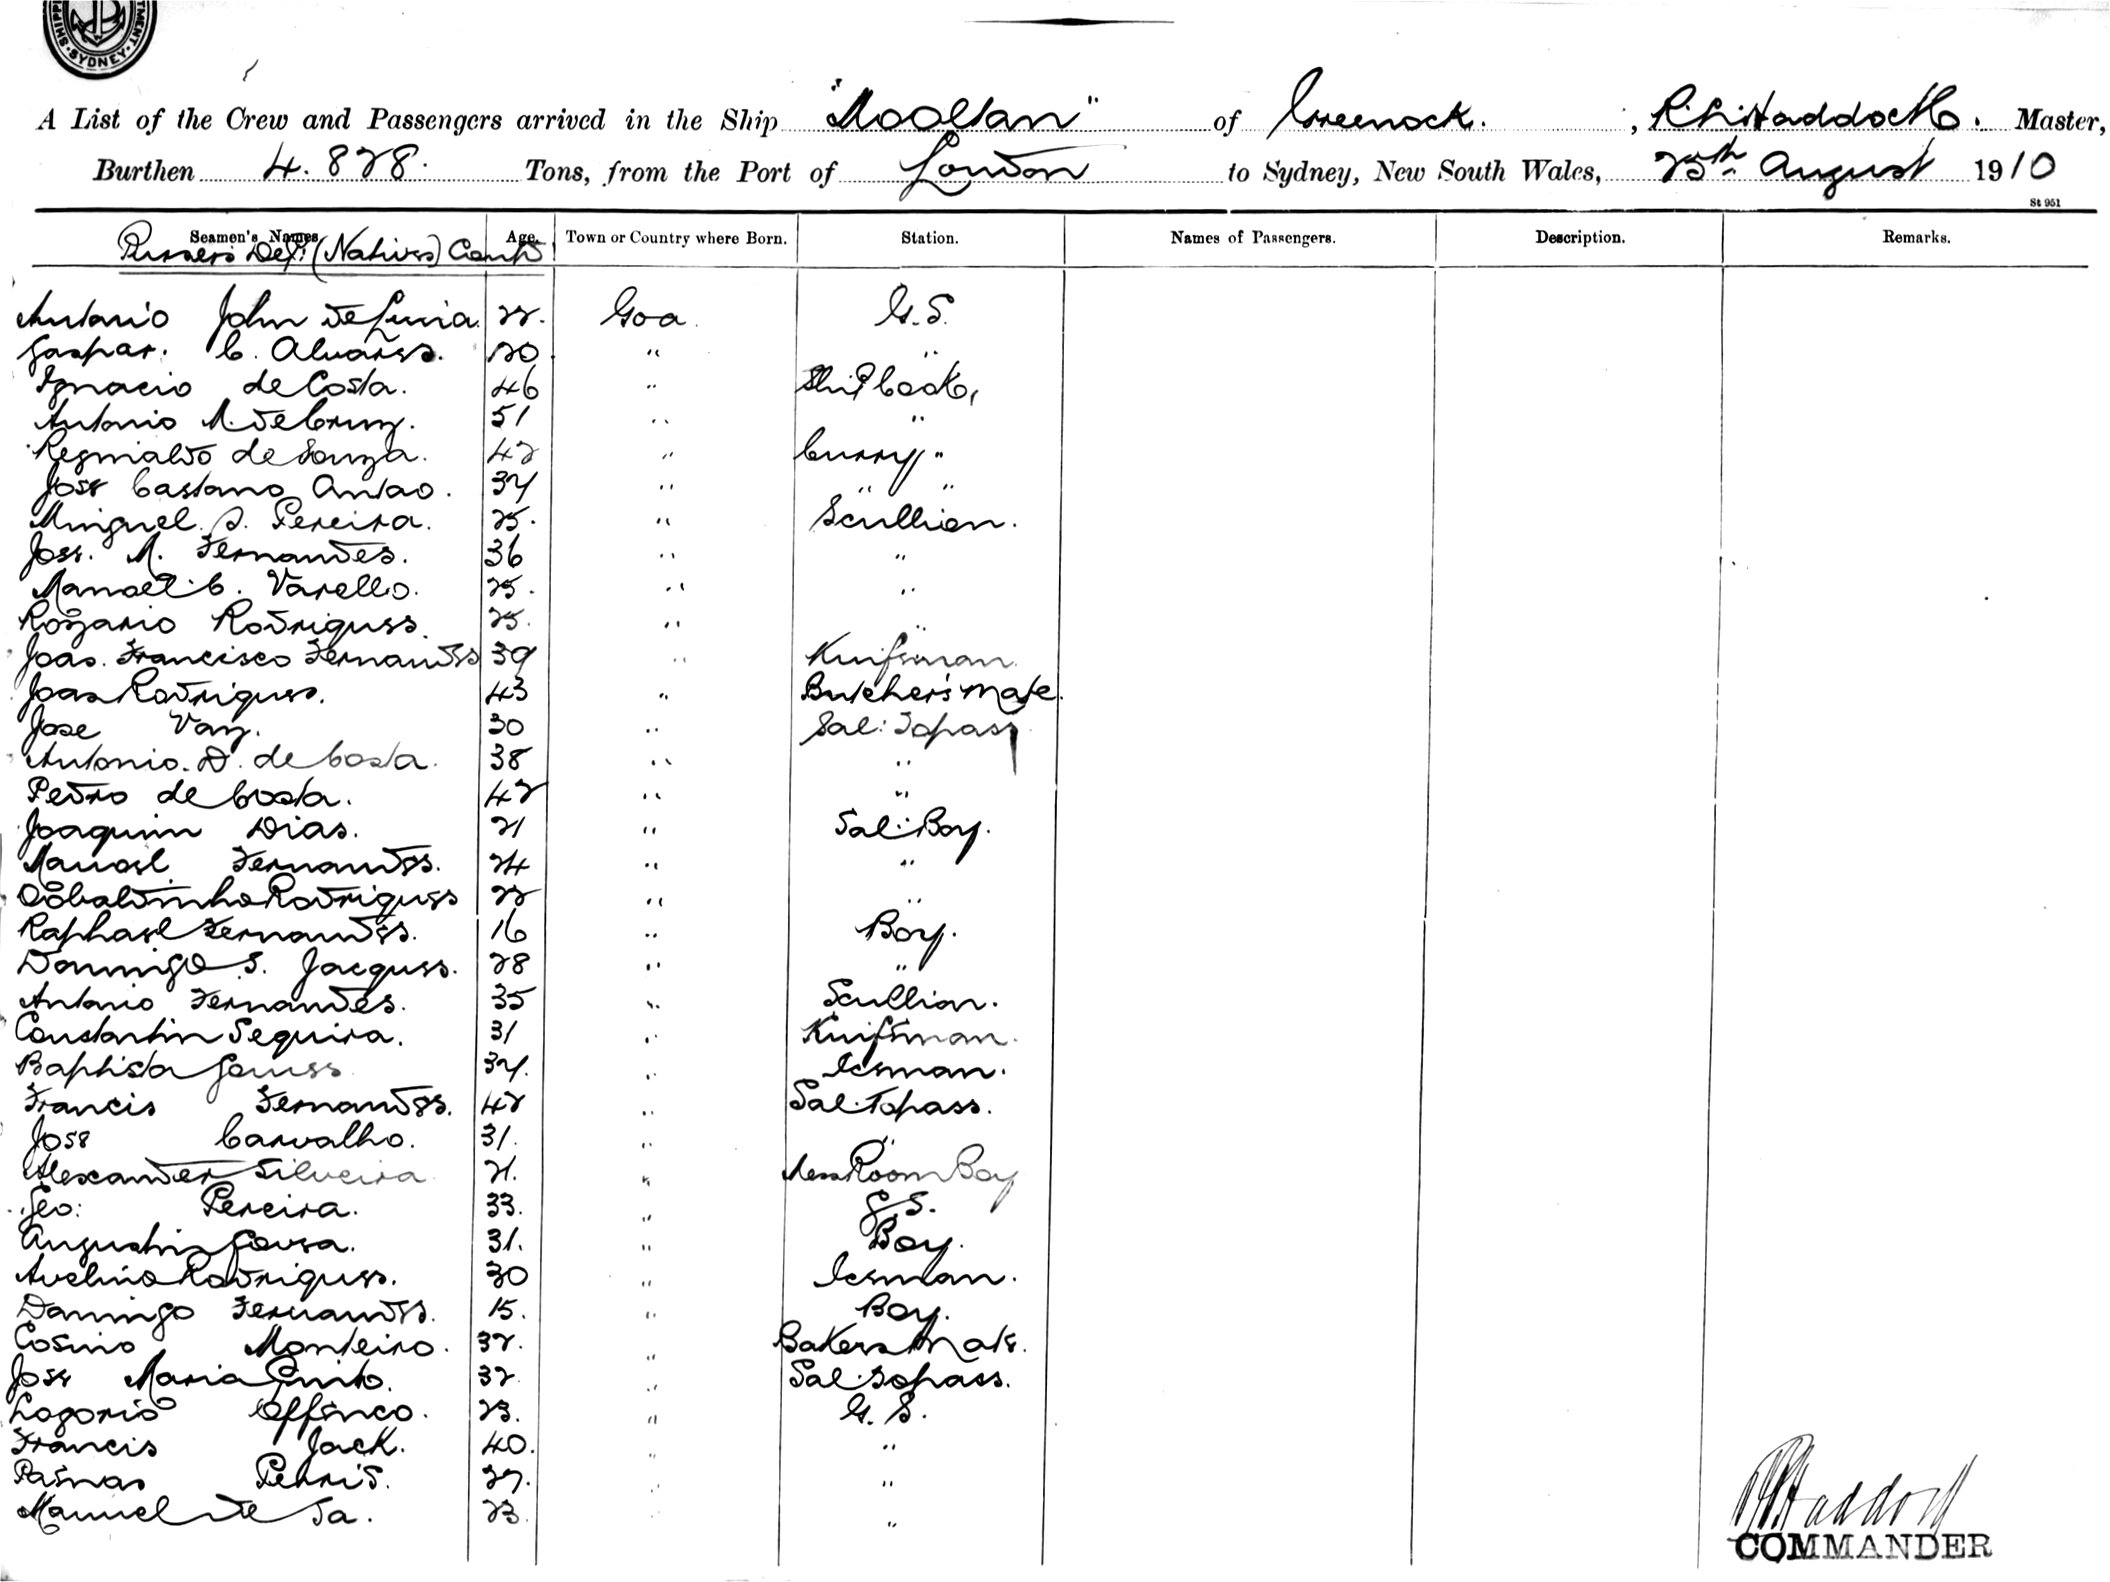 SHIPP MENT · SYDNEY
A List of the Crew and Passengers arrived in the Ship "Mooltan" of Greenock. , Master,
Burthen 4.828. Tons, from the Port of London to Sydney, New South Wales, 25th August 1910
St 951
Seamen's Names Age. Town or Country where Born. Station. Names of Passengers. Description. Remarks.
Pursers Dept (Natives) Contd
Antonio John 22. Goa. G.S.
Gaspar. C. Alvares. 20 " "
Ignacio de Costa. 46 " Ship Cook,
Antonio M. de Cruz. 51 " "
Reginaldo de Souza. 42 " Curry "
Jose Caetano Antao. 34 " " "
Minguel S. Pereira. 25. " Scullion.
Jose. M. Fernandes. 36 " "
Manoel C. Varello. 25. " "
Rozario Rodrigues. 25. " "
Joao. Francisco Fernandes 39 " Knifeman.
Joao Rodrigues. 43 " Butcher's Mate.
Jose Vaz. 30 " Sal: Topass
Antonio. D. de Costa. 38 " "
Pedro de Costa. 42 " "
Joaquim Dias. 21 " Sal: Boy.
Manoel Fernandes. 24 " "
Rodrigues 22 " "
Raphael Fernandes. 16 " Boy.
Domingo S. Jacques. 28 " "
Antonio Fernandes. 35 " Scullion.
Constantin Sequira. 31 " Knifeman.
Baptista Gomes 34. " Iceman.
Francis Fernandes. 42 " Sal. Topass.
Jose Carvalho. 31. " "
Alexander Silveira 21. " Mess Room Boy
Geo: Pereira. 33. " G.S.
Augustin 31. " Boy.
Avelino Rodrigues. 30 " Iceman.
Domingo Fernandes. 15. " Boy.
Cosmo Monteiro. 32. " Bakers Mate.
Jose Maria Pinto. 32 " Sal. Topass.
23. " G. S.
Francis Jack. 40. " "
Perris. 27. " "
Manuel de Sa. 23. " "
COMMANDER